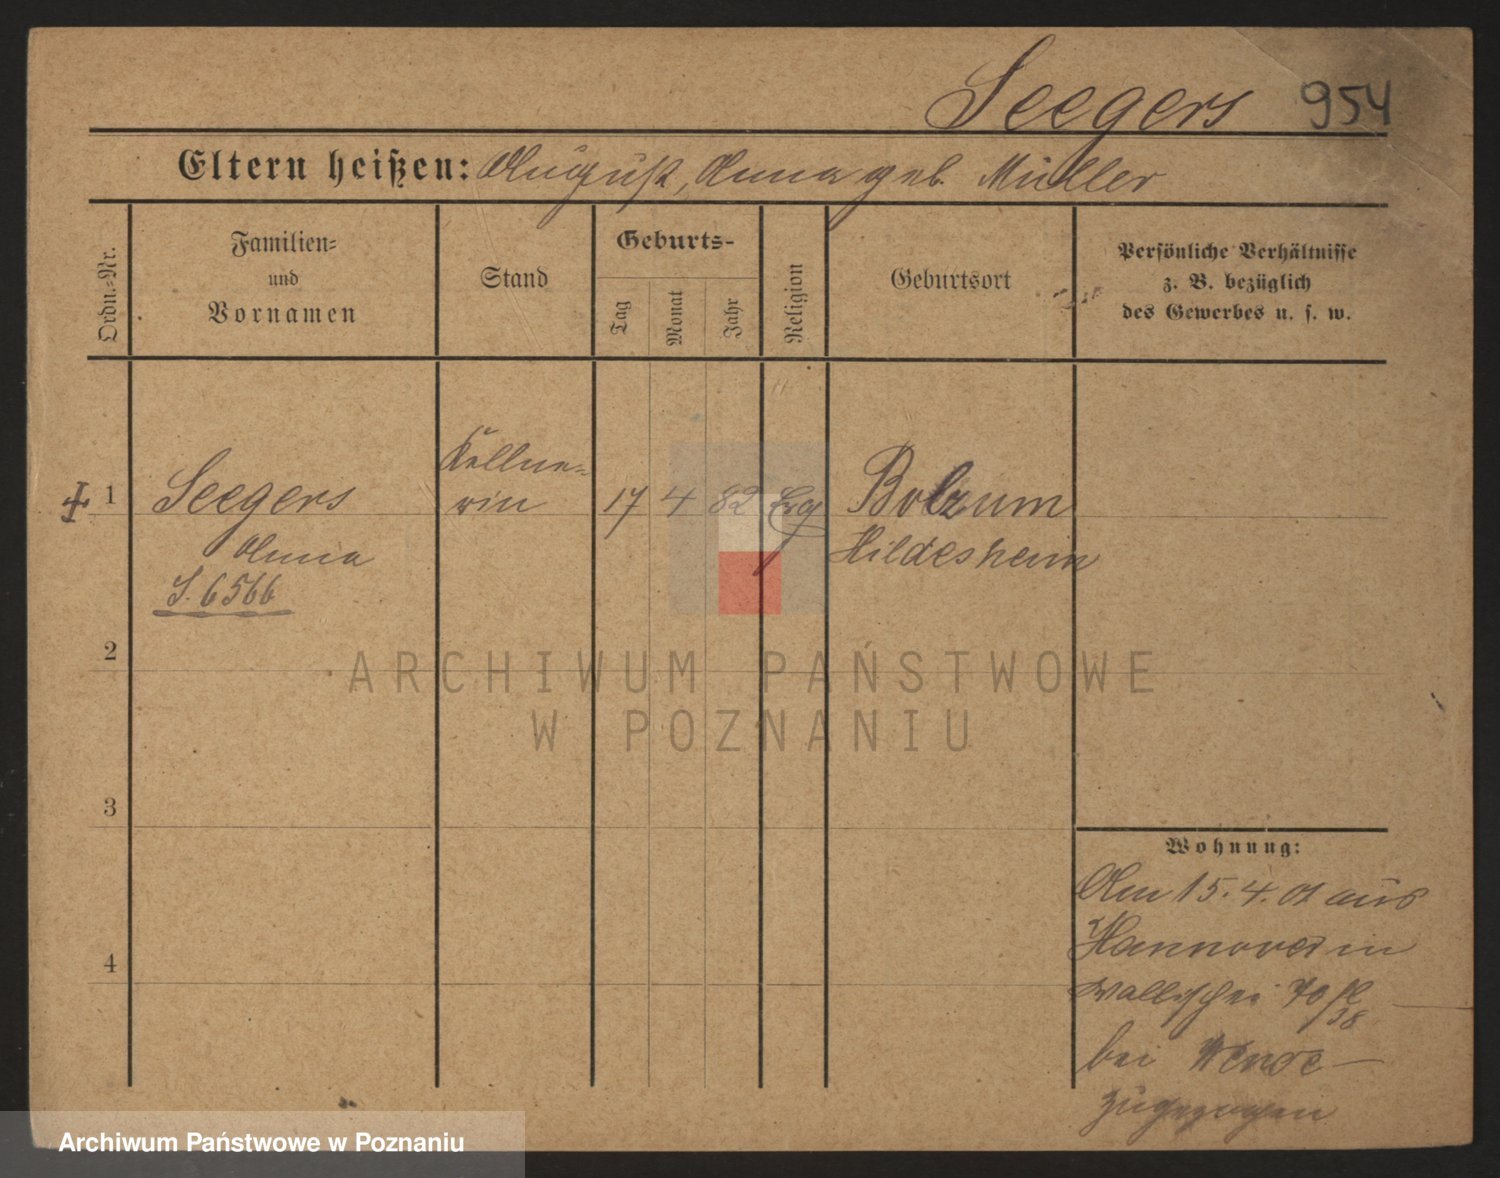 Seegers 954
Eltern heißen: August, Anna geb. Müller
Ordn.-Nr.
Familien-
und
Vornamen
Stand
Geburts-
Tag
Monat
Jahr
Religion
Geburtsort
Persönliche Verhältnisse
z. B. bezüglich
des Gewerbes u. s. w.
Kellne-
1 Seegers rin 17 4 82 Evg Bolzum
Anna Hildesheim
S. 6566
2
3
4
Wohnung:
Am 15.4.01 aus
Hannover in
Wallischei 70
bei
zugezogen
ARCHIWUM PAŃSTWOWE
W POZNANIU
Archiwum Państwowe w Poznaniu